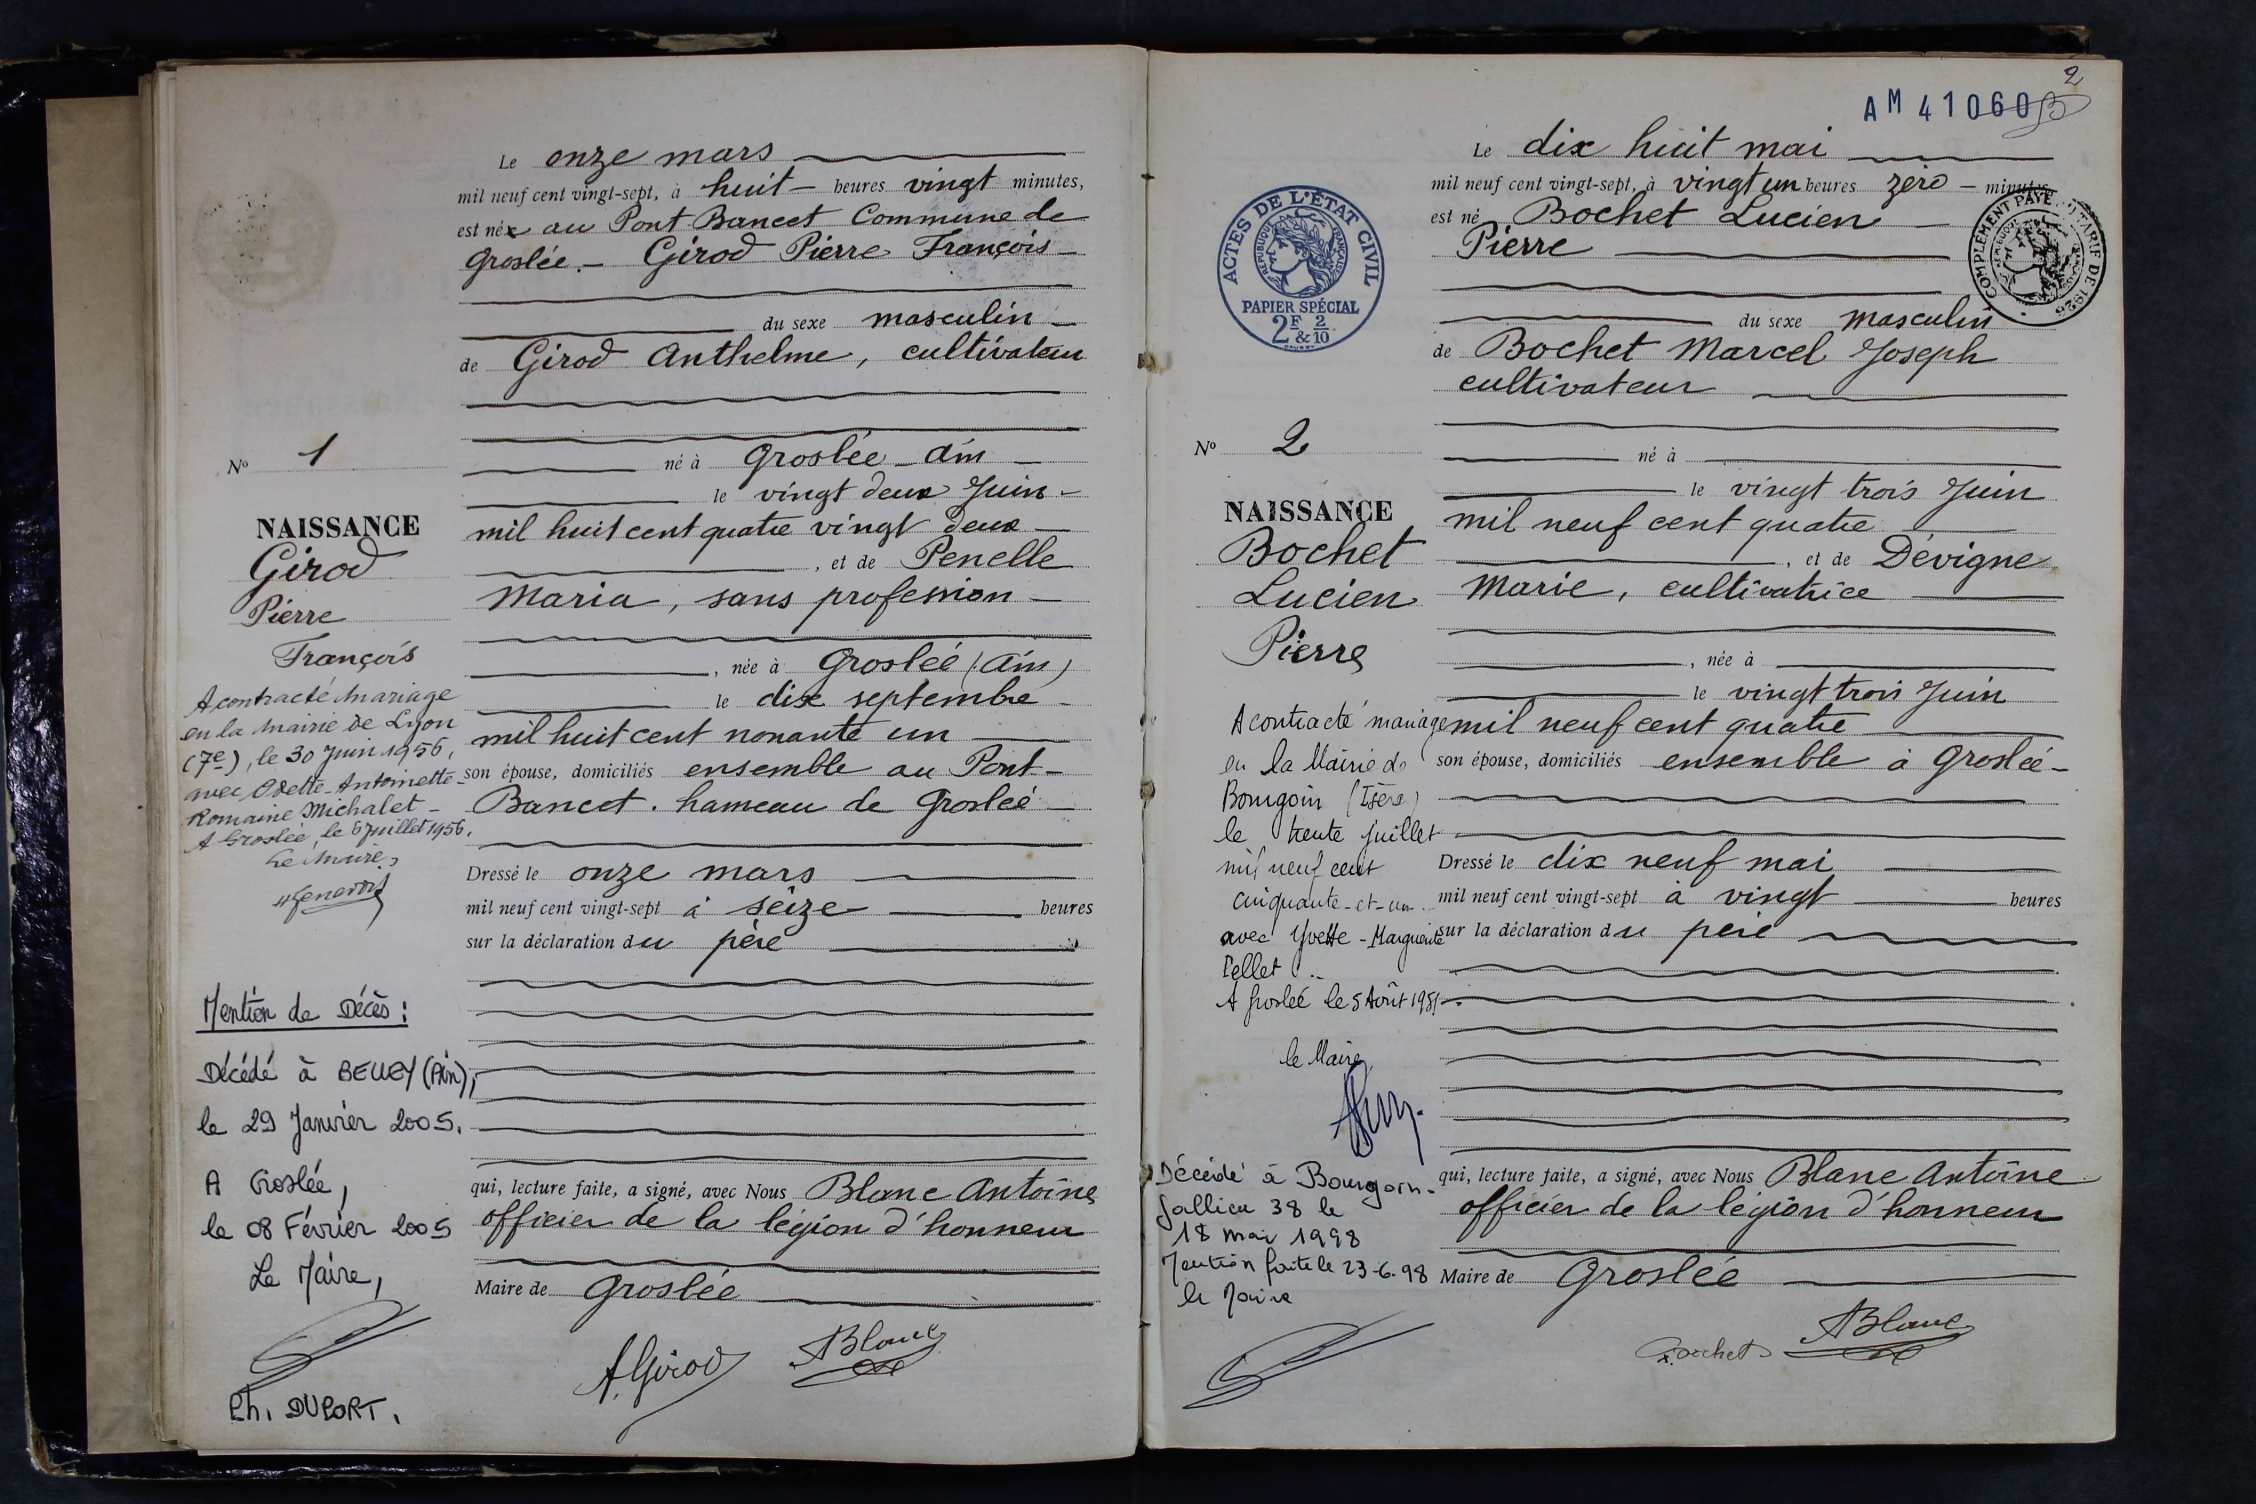 Le onze mars
mil neuf cent vingt-sept, à huit heures vingt minutes,
est né au Pont Bancet Commune de
Groslée. Girod Pierre François
du sexe masculin
de Girod Anthelme, cultivateur
né à Groslée Ain
le vingt deux Juin
mil huit cent quatre vingt deux
, et de Penelle
Maria, sans profession
, née à Groslée (Ain)
le dix septembre
mil huit cent nonante un
son épouse, domiciliés ensemble au Pont-
Bancet. hameau de Groslée
Dressé le onze mars
mil neuf cent vingt-sept à seize heures
sur la déclaration du père
qui, lecture faite, a signé, avec Nous Blanc Antoine
officier de la légion d'honneur
Maire de Groslée
A. Girod ABlanc
No 1
NAISSANCE
Girod
Pierre
François
A contracté mariage
en la Mairie de Lyon
(7e), le 30 Juin 1956,
avec Odette-Antoinette-
Romaine Michalet-
A Groslée, le 6 juillet 1956.
Le Maire,
Mention de Décès :
Décédé à BELLEY (Ain),
le 29 Janvier 2005.
A Groslée,
le 08 Février 2005
Le Maire,
Ph. DUPORT.
2
AM 41060
Le dix huit mai
mil neuf cent vingt-sept, à vingt un heures zéro minutes
est né Bochet Lucien
Pierre
du sexe masculin
de Bochet Marcel Joseph
cultivateur
né à
le vingt trois Juin
mil neuf cent quatre
, et de Dévigne
Marie, cultivatrice
, née à
le vingt trois Juin
mil neuf cent quatre
son épouse, domiciliés ensemble à Groslée
Dressé le dix neuf mai
mil neuf cent vingt-sept à vingt heures
sur la déclaration du père
qui, lecture faite, a signé, avec Nous Blanc Antoine
officier de la légion d'honneur
Maire de Groslée
Bochet ABlanc
ACTES DE L'ÉTAT CIVIL
RÉPUBLIQUE FRANÇAISE
PAPIER SPÉCIAL
2F & 2/10
COMPLÉMENT PAYÉ TARIF DE 1926
No 2
NAISSANCE
Bochet
Lucien
Pierre
A contracté mariage
en la Mairie de
Bourgoin (Isère)
le trente juillet
mil neuf cent
cinquante-et-un
avec Yvette-Marguerite
Pellet
A Groslée le 5 Août 1951
le Maire
Décédé à Bourgoin-
Jallieu 38 le
18 mai 1998
Mention faite le 23-6-98
le Maire